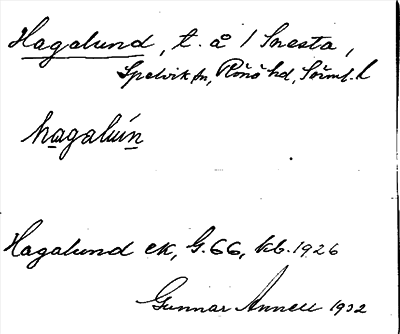 Hagalund, t. å 1 Snesta,
Spelvik sn, Rönö hd, Sörml. l
hagalún
Hagalund ek, G.66, kb. 1926
Gunnar Annell 1932